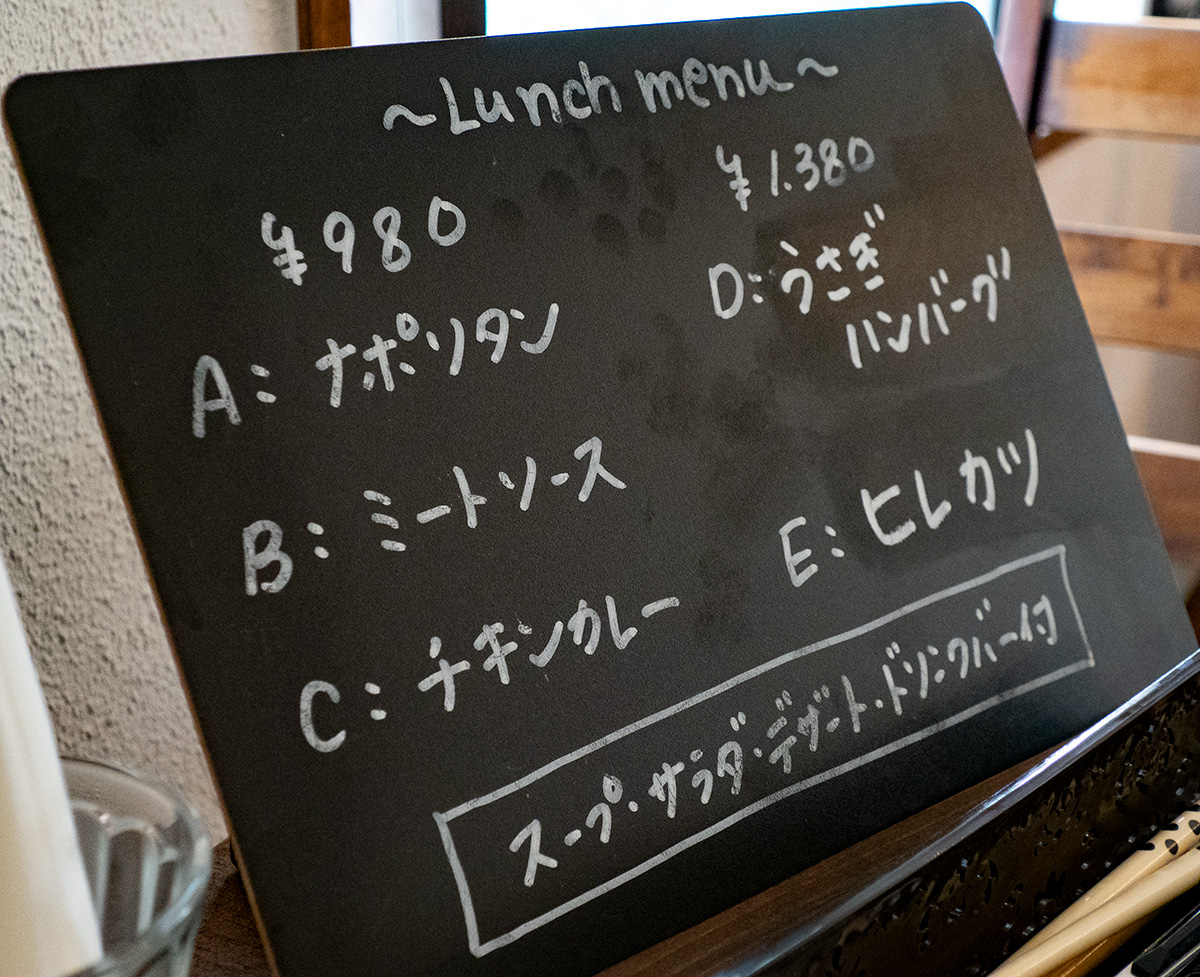 ~Lunch menu~
¥980
A: ナポリタン
B: ミートソース
C: チキンカレー
¥1.380
D: うさぎ
ハンバーグ
E: ヒレカツ
スープ・サラダ・デザート・ドリンクバー付